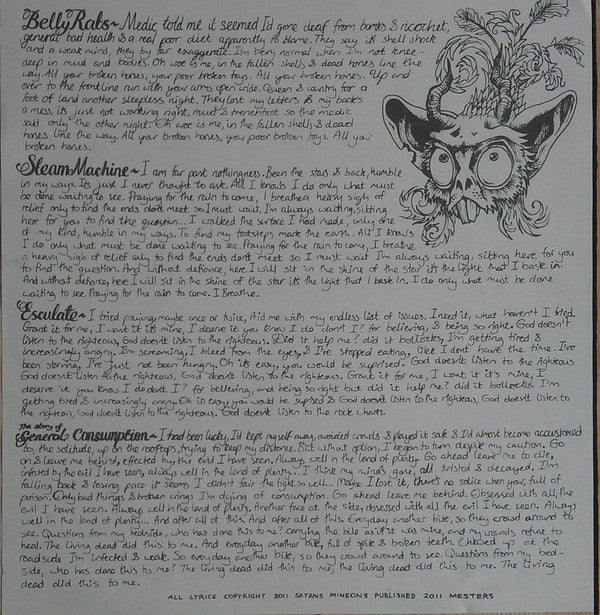 Belly Rats ~ Medic told me it seemed I'd gone deaf from bombs & ricochet,
general bad health & a real poor diet apparently to blame. They say it's shell shock
and a weak mind, they by far exaggerate. I'm very normal when I'm not knee-
deep in mud and bodies. Oh woe is me, in the fallen shells & dead horses line the
way. All your broken horses, your poor broken toys. All your broken horses. Up and
over to the frontline run with your arms open wide. Queen & country for a
foot of land another sleepless night. They lost my letters & my back's
a mess, it's just not working right, mud & trenchfoot so the medic
said only the other night. Oh woe is me, in the fallen shells & dead
horses line the way. All your broken horses, your poor broken toys. All your
broken horses.
Steam Machine ~ I am far past nothingness. Been the stars & back, humble
in my ways. Its just I never thought to ask. All I knows I do only what must
be done waiting to see. Praying for the rain to come, I breathe a heavy sigh of
relief only to find the ends don't meet so I must wait. I'm always waiting, sitting
here for you to find the question. I walked the surface I had made, only one
of my kind, humble in my ways. To find my footsteps mark the earth. All I knows
I do only what must be done waiting to see. Praying for the rain to come, I breathe
a heavy sigh of relief only to find the ends don't meet so I must wait I'm always waiting, sitting here for you
to find the question. And without defiance, here I will sit in the shine of the star it's the light that I bask in.
And without defiance, here I will sit in the shine of the star it's the light that I bask in. I do only what must be done
waiting to see. Praying for the rain to come. I Breathe.
Esculate ~ I tried praying, maybe once or twice, Aid me with my endless list of issues. I need it, what haven't I tried.
Grant it for me, I want it it's mine, I deserve it you knows I do don't I? for believing, & being so right. God doesn't
listen to the righteous, God doesn't listen to the righteous. Did it help me? did it bollocks, I'm getting tired &
increasingly angry. I'm screaming, I bleed from the eyes, & I've stopped eating, like I don't have the time. I've
been starving, I've just not been hungry. Oh it's easy, you could be surprised. God doesn't listen to the righteous
God doesn't listen to the righteous, God doesn't listen to the righteous. Grant it for me, I want it it's mine, I
deserve it you knows I do don't I? for believing, and being so right but did it help me? did it bollocks I'm
getting tired & increasingly angry. Oh is easy you would be suprised & God doesn't listen to the righteous, God doesn't listen to
the righteous, God doesn't listen to the righteous, God doesn't listen to the rock charts.
The story of
General Consumption ~ I had been lucky, I'd kept myself away, avoided crowds & played it safe & I'd almost become accustomed
to, the solitude, up on the rooftops, trying to keep my distance. But without option, I began to turn despite my caution. Go
on & leave me behind, effected by, this evil I have seen, Always well in the land of plenty. Go ahead leave me to die,
infected by the evil I have seen, always well in the land of plenty.. I think my mind's gone, all twisted & decayed, I'm
falling back & losing pace it seems I didn't fair the fight so well... Maybe I lost it, there's no solice when your, full of
poison. Only bad things & broken wings I'm dying of consumption. Go ahead leave me behind. Obsessed with all, the
evil I have seen. Always well in the land of plenty. Another face at the side, obsessed with all the evil I have seen. Always
well in the land of plenty... And after all of this. And after all of this. Everyday another bite, so they crowd around to
see. Questions from my bedside, who has done this to me? carrying the bile as if it was mine, and my wounds refuse to
heal. The living dead did this to me. And everyday another bite, full of spite & broken teeth. Chewed up at the
roadside I'm infected & weak. So everyday another bite, so they crowd around to see. Questions from my bed-
side, who has done this to me? The living dead did this to me, the living dead did this to me. The living
dead did this to me.
ALL LYRICS COPYRIGHT 2011 SATANS MINEONS PUBLISHED 2011 MESTERS